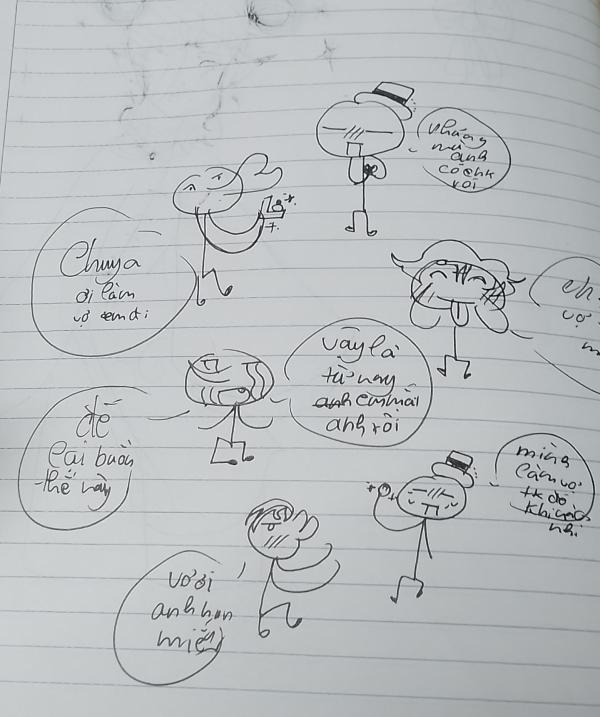 nhưng
mà
anh
có chk
rồi
Chuya
ơi làm
vợ em đi
ch
vợ
m
vậy là
từ nay
anh em mãi
anh rồi
đế
cái buồn
thế này
mình
làm vợ
tk đó
khi nào
nhỉ
vợ ơi
anh hun
miếng